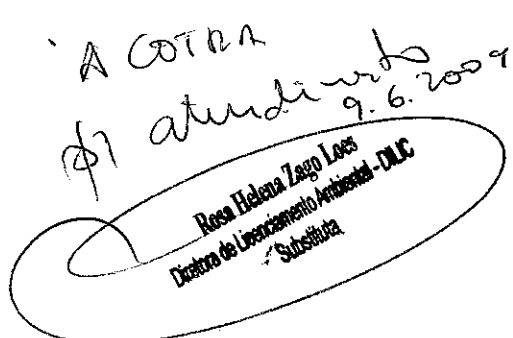 À COTRA
p/ atendimento
9.6.2009
Rosa Helena Zago Loes
Diretora de Licenciamento Ambiental - DILIC
Substituta